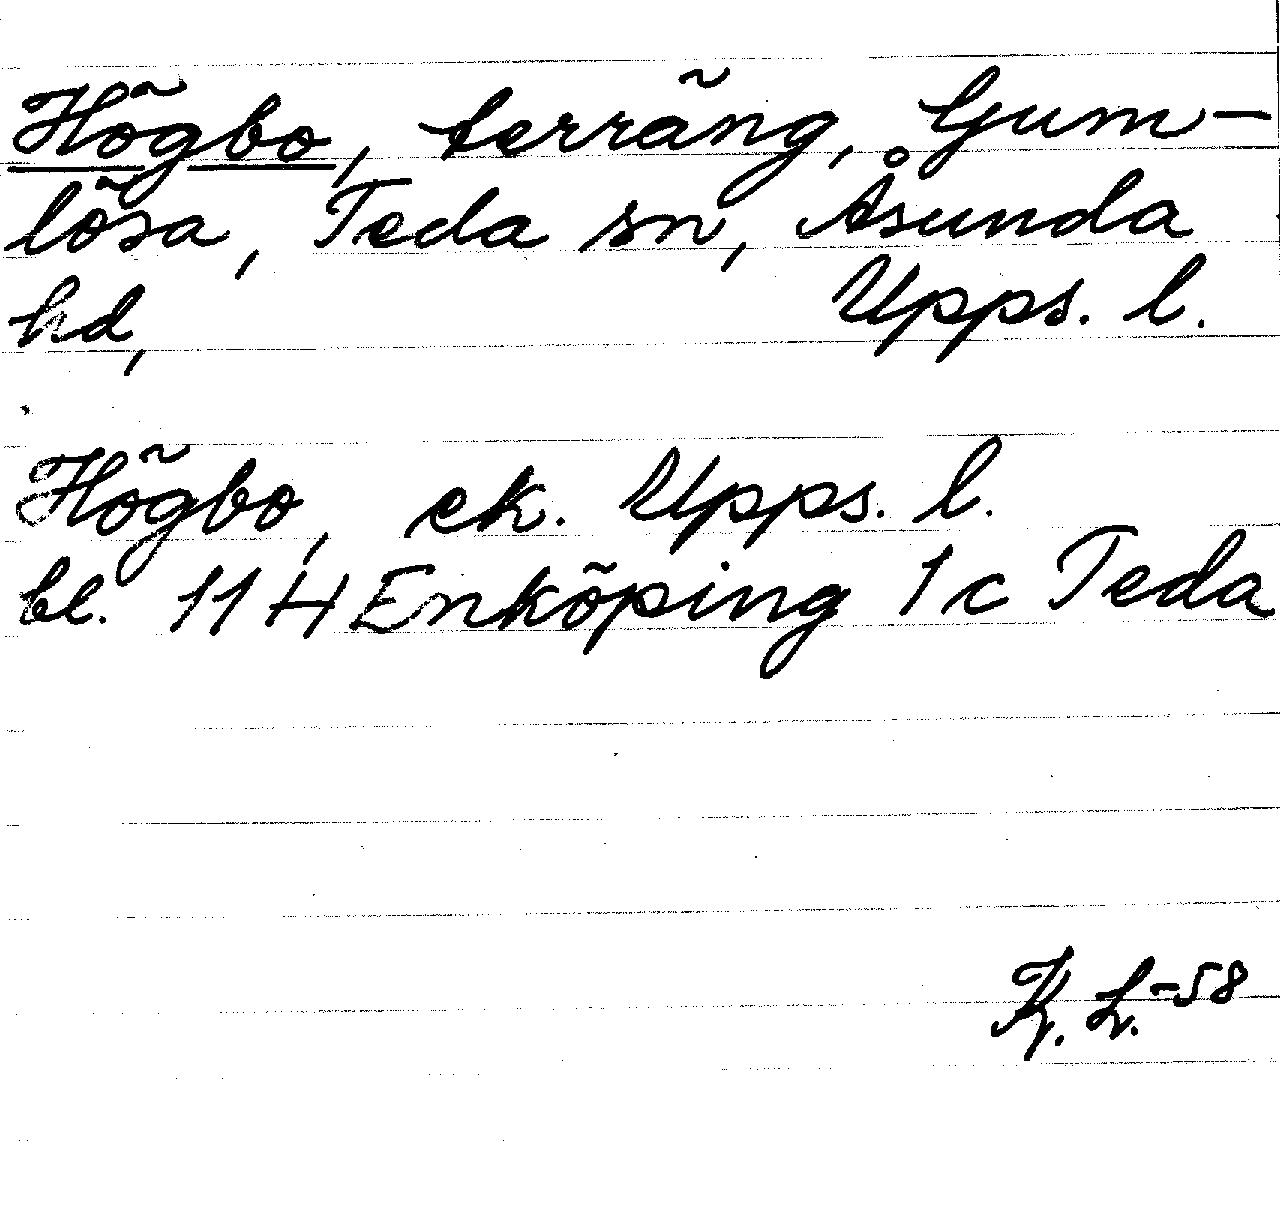 Högbo, terräng, Gum-
lösa, Teda sn, Åsunda
hd, Upps. l.
Högbo, ek. Upps. l.
bl. 11 H Enköping 1 c Teda
K. L. -58